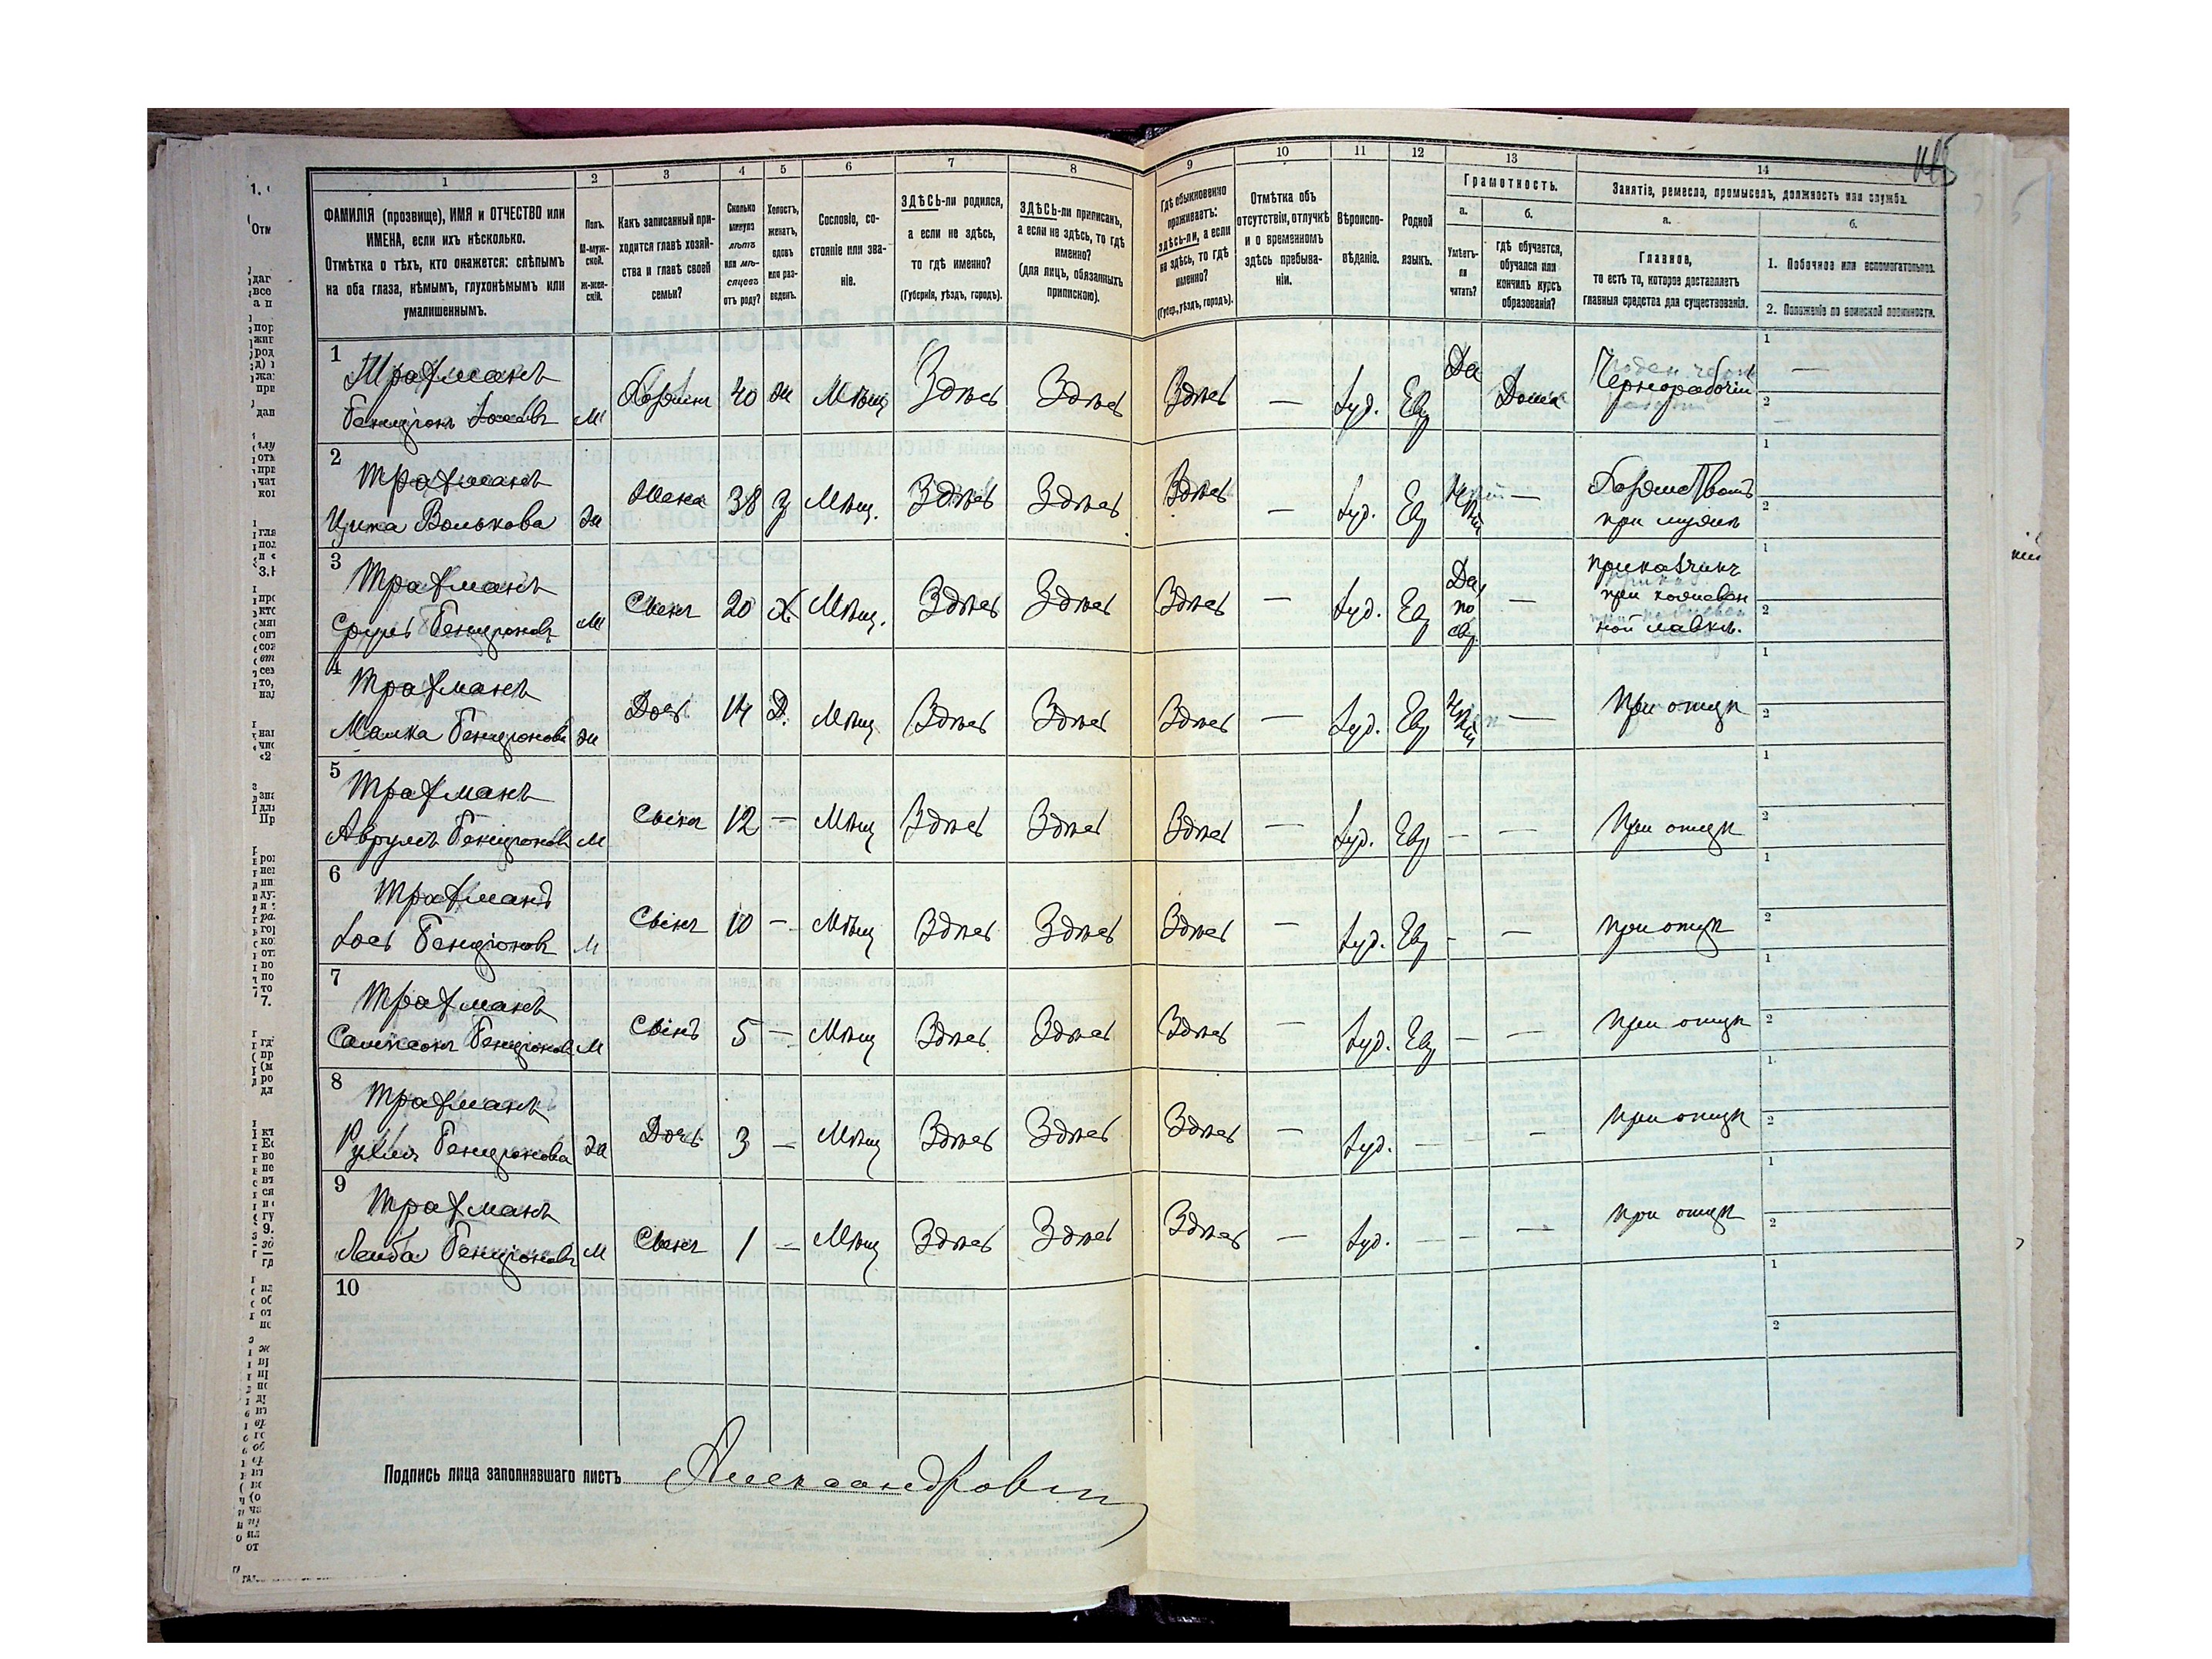 1 2 3 4 5 6 7 8 9 10 11 12 13 14
ФАМИЛІЯ (прозвище), ИМЯ и ОТЧЕСТВО или
ИМЕНА, если ихъ нѣсколько.
Отмѣтка о тѣхъ, кто окажется: слѣпымъ
на оба глаза, нѣмымъ, глухонѣмымъ или
умалишеннымъ.
Полъ.
М-муж-
ской.
Ж-жен-
скій.
Какъ записанный при-
ходится главѣ хозяй-
ства и главѣ своей
семьи?
Сколько
минуло
лѣтъ
или мѣ-
сяцевъ
отъ роду?
Холостъ,
женатъ,
вдовъ
или раз-
веденъ.
Сословіе, со-
стояніе или зва-
ніе.
ЗДѢСЬ-ли родился,
а если не здѣсь,
то гдѣ именно?
(Губернія, уѣздъ, городъ).
ЗДѢСЬ-ли приписанъ,
а если не здѣсь, то гдѣ
именно?
(для лицъ, обязанныхъ
припискою).
Гдѣ обыкновенно
проживаетъ:
здѣсь-ли, а если
не здѣсь, то гдѣ
именно?
(Губер., уѣздъ, городъ).
Отмѣтка объ
отсутствіи, отлучкѣ
и о временномъ
здѣсь пребыва-
ніи.
Вѣроиспо-
вѣданіе.
Родной
языкъ.
Грамотность.
а.
Умѣетъ-
ли
читать?
б.
гдѣ обучается,
обучался или
кончилъ курсъ
образованія?
Занятіе, ремесло, промыселъ, должность или служба.
а.
Главное,
то есть то, которое доставляетъ
главныя средства для существованія.
б.
1. Побочное или вспомогательное.
2. Положеніе по воинской повинности.
1 Трахманъ
Бенціонъ М Хозяинъ 40 ж Мѣщ Здѣсь Здѣсь Здѣсь — Іуд. Евр Да Дома Чернорабочій
2 Трахманъ
Волькова ж Жена 38 з Мѣщ. Здѣсь Здѣсь Здѣсь — Іуд. Евр — Хозяйствомъ
при мужѣ
3 Трахманъ
Сруль Бенціоновъ М Сынъ 20 х Мѣщ. Здѣсь Здѣсь Здѣсь — Іуд. Евр Да, по евр — приказчикъ
при
ной лавкѣ.
4 Трахманъ
Малка Бенціонова ж Дочь 14 Д. Мѣщ Здѣсь Здѣсь Здѣсь — Іуд. Евр — При отцѣ
5 Трахманъ
Аврумъ Бенціоновъ М Сынъ 12 — Мѣщ Здѣсь Здѣсь Здѣсь — Іуд. Евр — — При отцѣ
6 Трахманъ
Іось Бенціоновъ М Сынъ 10 — Мѣщ Здѣсь Здѣсь Здѣсь — Іуд. Евр - — при отцѣ
7 Трахманъ
Самсонъ Бенціоновъ М Сынъ 5 — Мѣщ Здѣсь Здѣсь Здѣсь — Іуд. Евр — — При отцѣ
8 Трахманъ
Бенціонова ж Дочь 3 — Мѣщ Здѣсь Здѣсь Здѣсь — Іуд. — — — при отцѣ
9 Трахманъ
Лейба Бенціоновъ М Сынъ 1 — Мѣщ Здѣсь Здѣсь Здѣсь — Іуд. — — — при отцѣ
10
Подпись лица заполнявшаго листъ